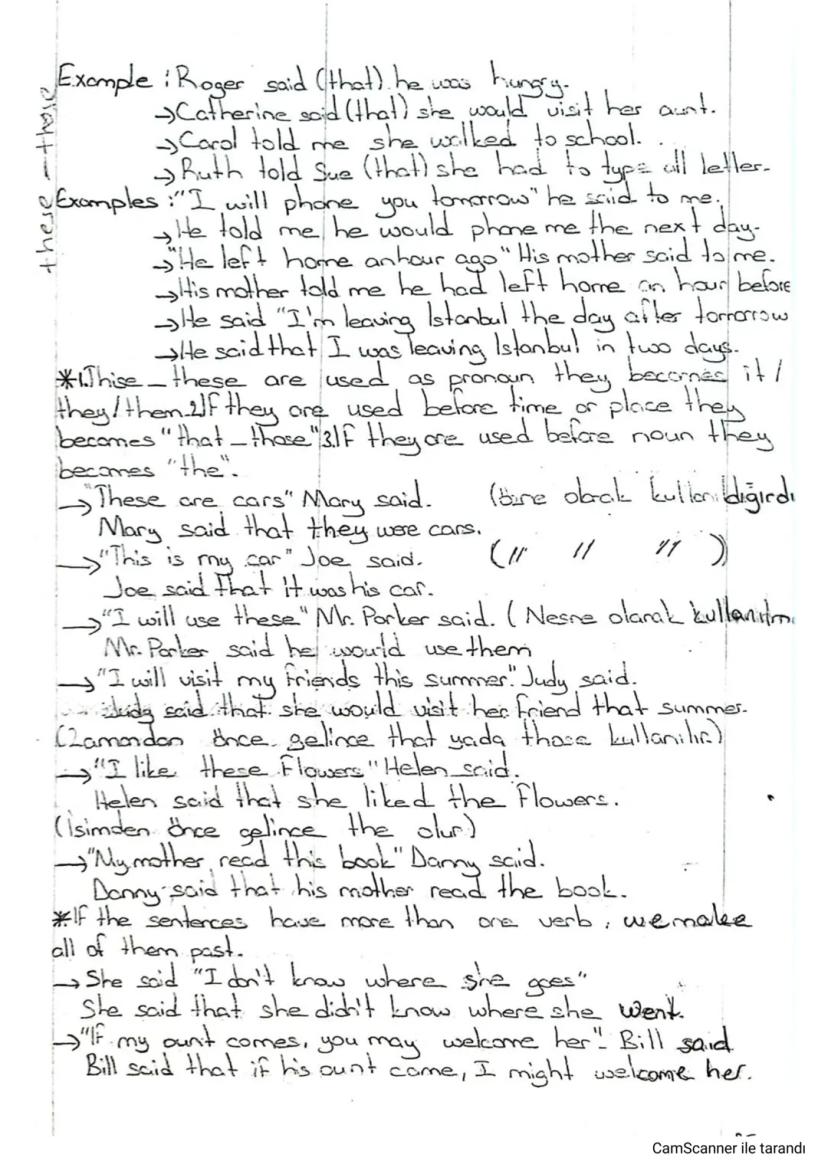 these - those
Example : Roger said (that) he was hungry.
→ Catherine said (that) she would visit her aunt.
→ Carol told me she walked to school.
→ Ruth told Sue (that) she had to type all letter.
Examples : "I will phone you tomorrow" he said to me.
→ He told me he would phone me the next day.
→ "He left home an hour ago" His mother said to me.
→ His mother told me he had left home an hour before
→ He said "I'm leaving Istanbul the day after tomorrow
→ He said that I was leaving Istanbul in two days.
*1.Thise - these are used as pronoun they becomes it /
they / them 2.If they are used before time or place they
becomes "that - those" 3.If they are used before noun they
becomes "the".
→ "These are cars" Mary said. (özne olarak kullanıldığırdı
Mary said that they were cars.
→ "This is my car" Joe said. (" " " )
Joe said that it was his car.
→ "I will use these" Mr. Parker said. ( Nesne olarak kullanılm
Mr. Parker said he would use them
→ "I will visit my friends this summer." Judy said.
Judy said that she would visit her friend that summer.
(Zamandan önce gelince that yada those kullanılır.)
→ "I like these Flowers" Helen said.
Helen said that she liked the flowers.
(İsimden önce gelince the olur)
→ "My mother read this book" Danny said.
Danny said that his mother read the book.
*If the sentences have more than one verb, we make
all of them past.
→ She said "I don't know where she goes"
She said that she didn't know where she went.
→ "If my aunt comes, you may welcome her". Bill said
Bill said that if his aunt came, I might welcome her.
CamScanner ile tarandı